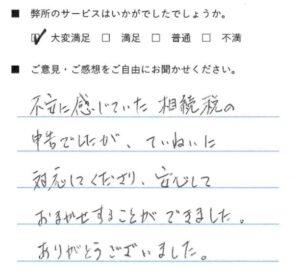 ■ 弊所のサービスはいかがでしたでしょうか。
☑ 大変満足 □ 満足 □ 普通 □ 不満
■ ご意見・ご感想をご自由にお聞かせください。
不安に感じていた相続税の
申告でしたが、ていねいに
対応してくださり、安心して
おまかせすることができました。
ありがとうございました。